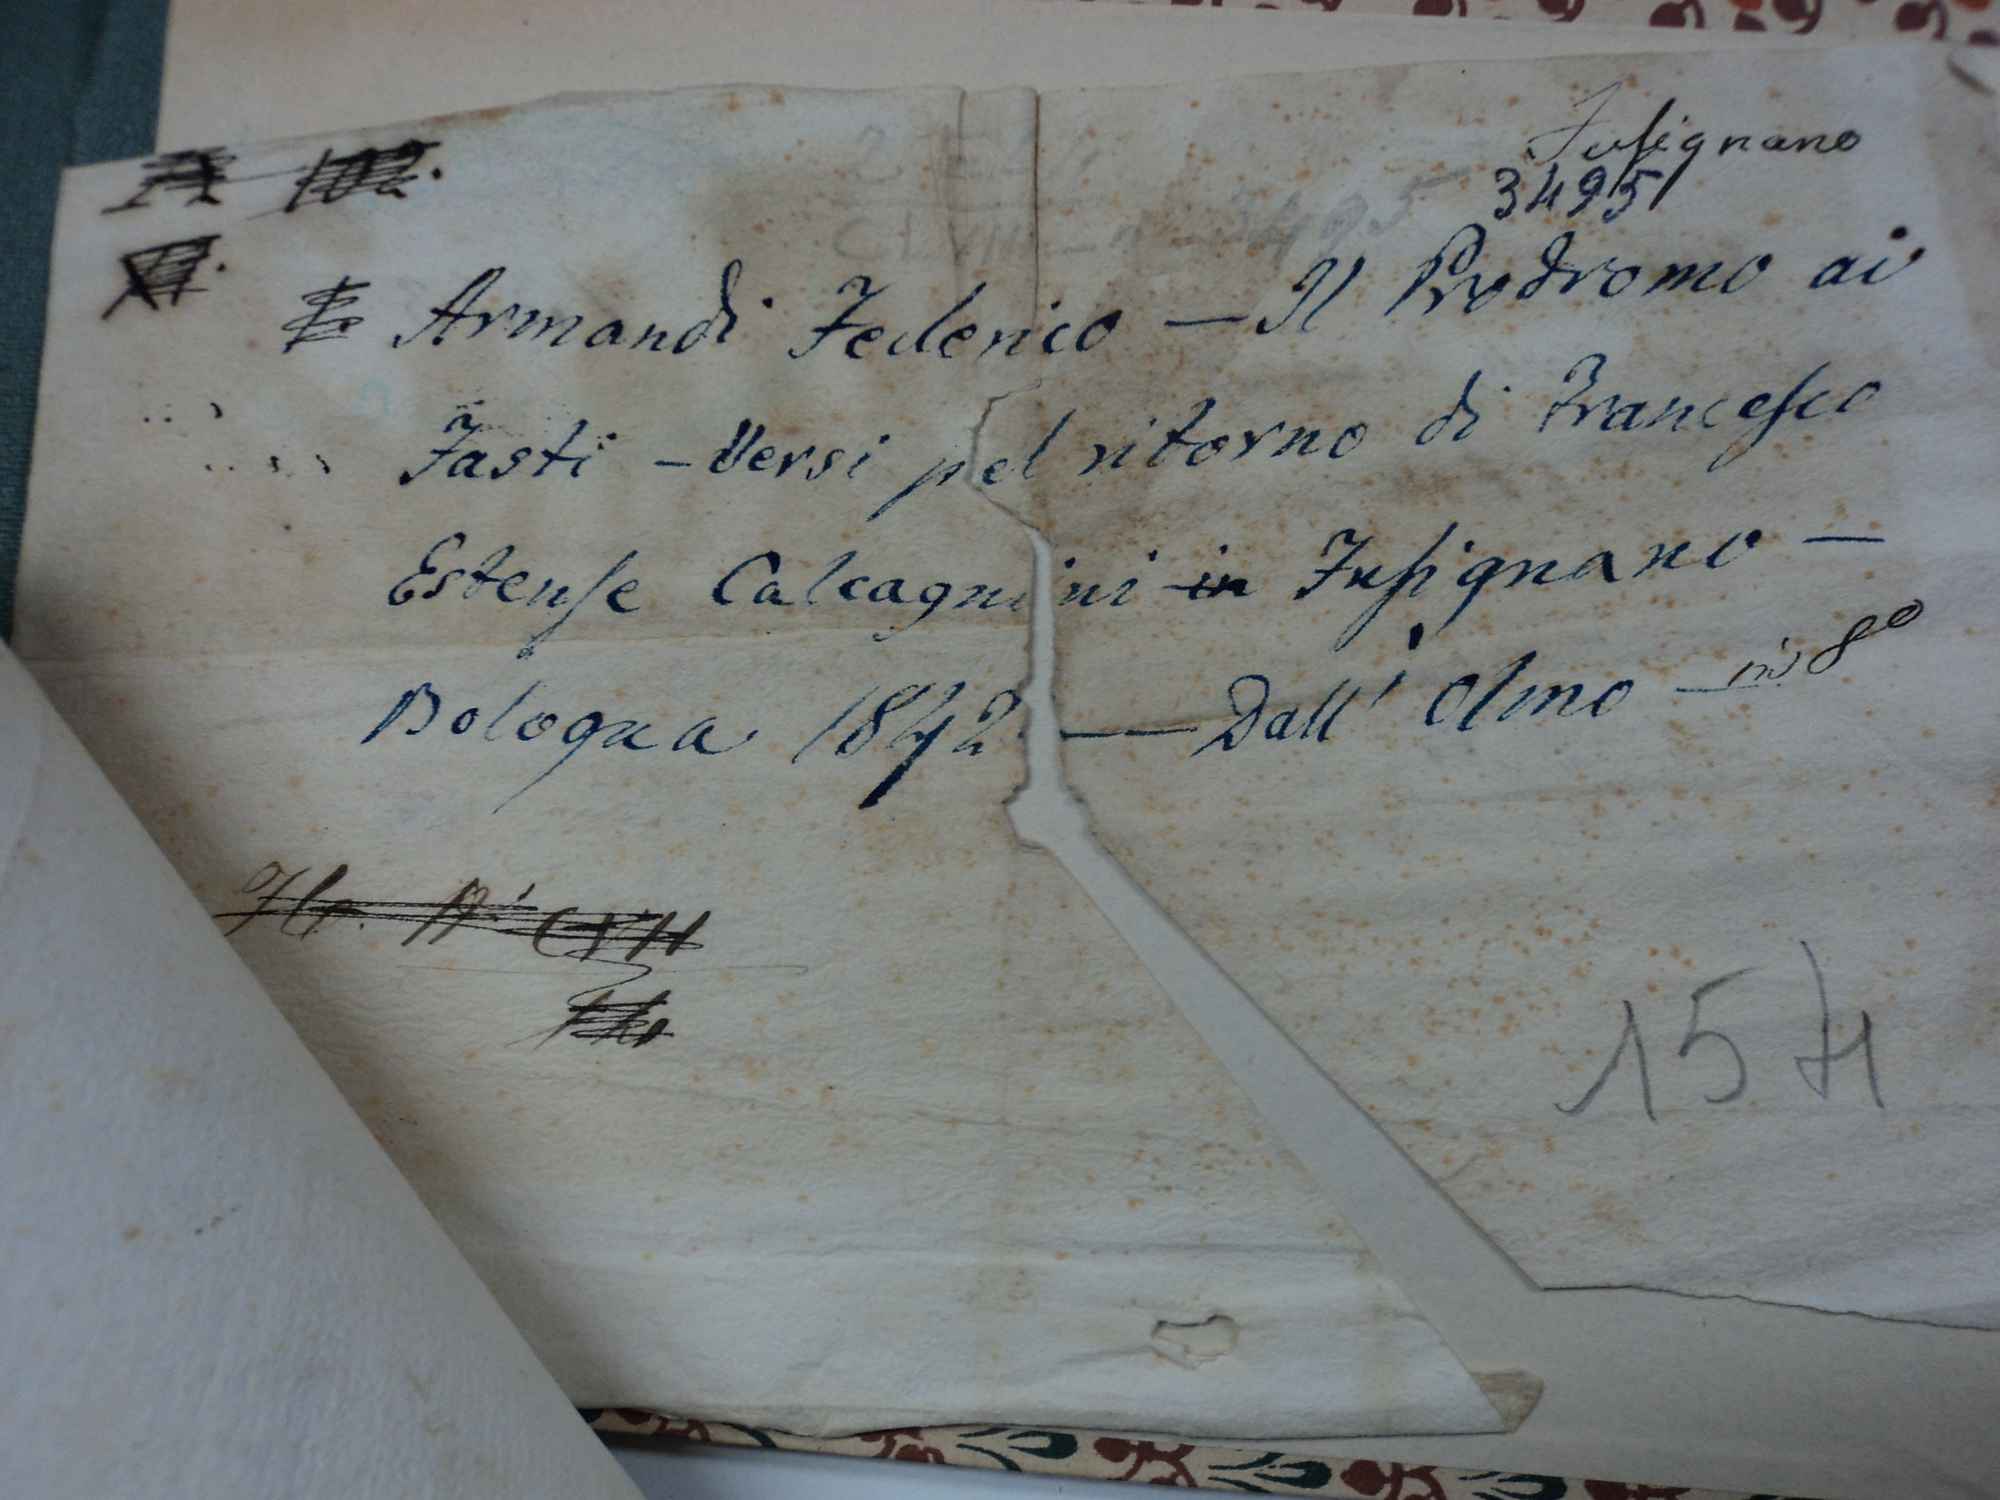 Fusignano
3495
Armandi Federico — Il Prodromo ai
Fasti — Versi pel ritorno di Francesco
Estense Calcagnini in Fusignano —
Bologna 1842 — Dall' Olmo — in 8º
154